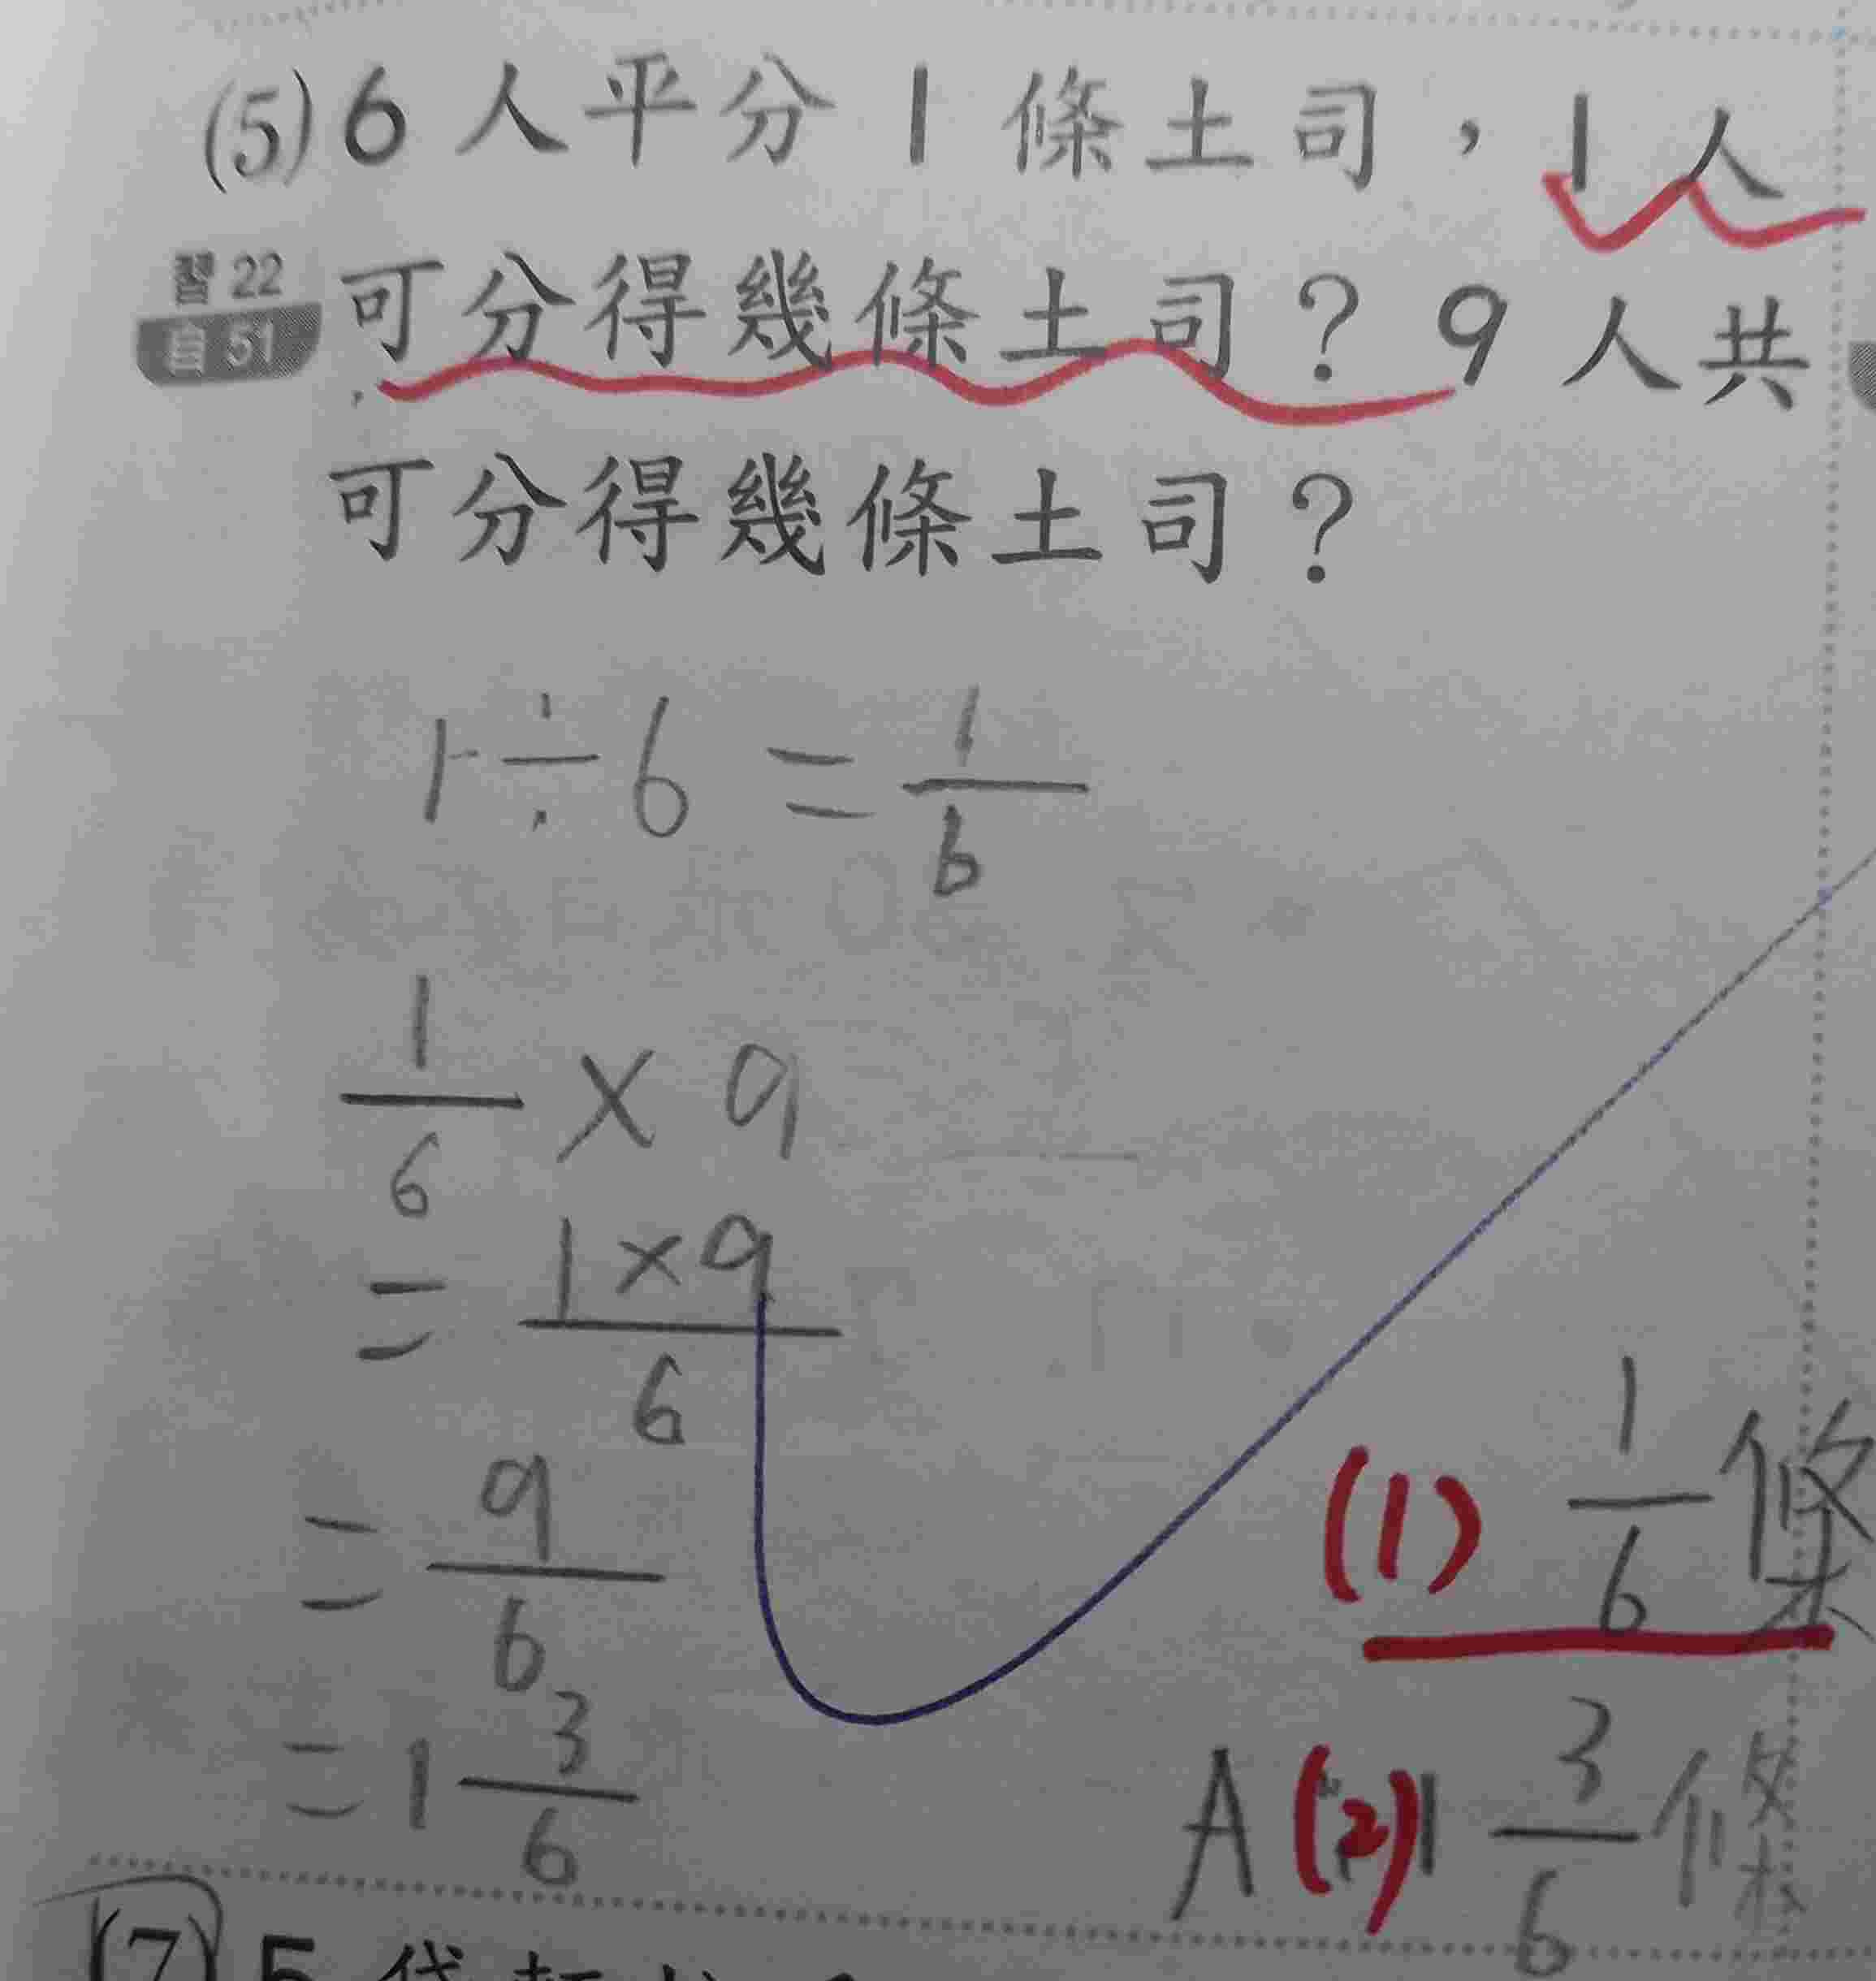 (5) 6 人平分 1 條土司，1 人
習 22
自 51
可分得幾條土司？9 人共
可分得幾條土司？
1 ÷ 6 = 1/6
1/6 × 9
= 1×9/6
= 9/6
= 1 3/6
(1) 1/6 條
A (2) 1 3/6 條
(7) 5